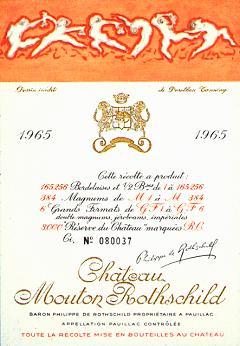 Dessin inédit de Dorothea Tanning
1965 1965
Cette récolte a produit:
165256 Bordelaises et 1/2 Bses de 1 à 165256
384 Magnums de M1 à M 384
6 Grands Formats de GF1 à GF6
double magnums, jéroboams, impériales
3000 Réserve du Château marquées R.C.
Ci, № 080037
Philippe de Rothschild
Château
Mouton Rothschild
BARON PHILIPPE DE ROTHSCHILD PROPRIÉTAIRE A PAUILLAC
APPELLATION PAUILLAC CONTRÔLÉE
TOUTE LA RÉCOLTE MISE EN BOUTEILLES AU CHÂTEAU